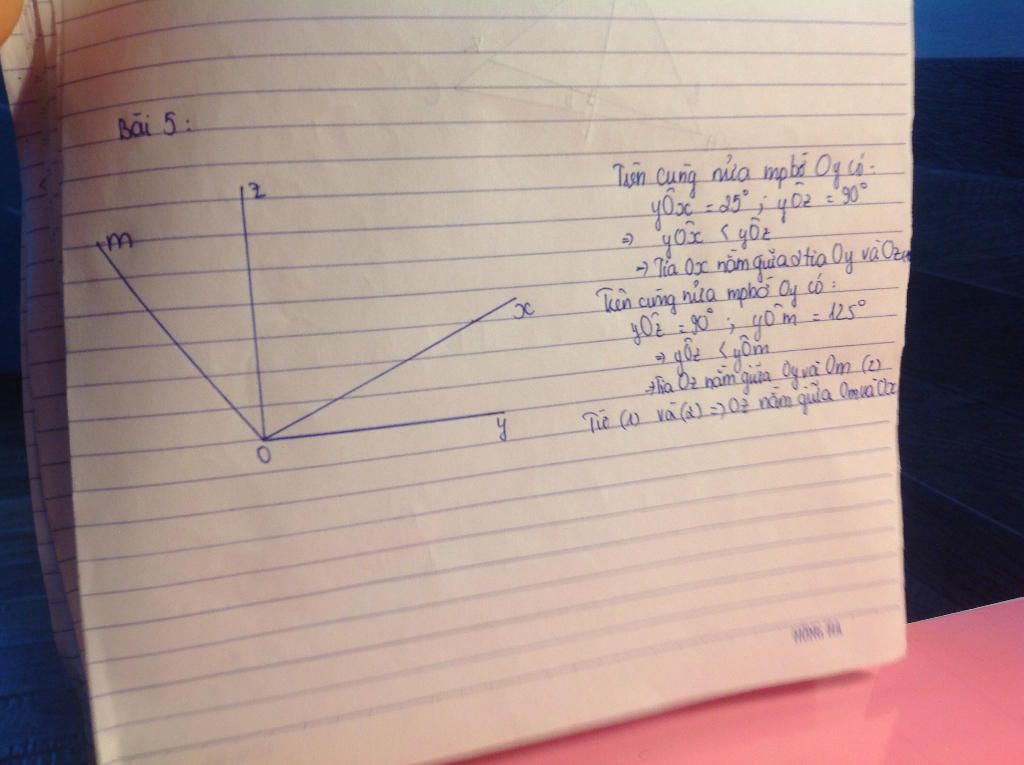 Bài 5:
z
m
x
y
O
Trên cùng nửa mp bờ Oy có:
yÔx = 25° ; yÔz = 90°
=> yÔx < yÔz
-> Tia Ox nằm giữa 2 tia Oy và Oz
Trên cùng nửa mp bờ Oy có:
yÔz = 90° ; yÔm = 125°
=> yÔz < yÔm
-> Tia Oz nằm giữa Oy và Om (2)
Từ (1) và (2) => Oz nằm giữa Om và Ox
HỒNG HÀ